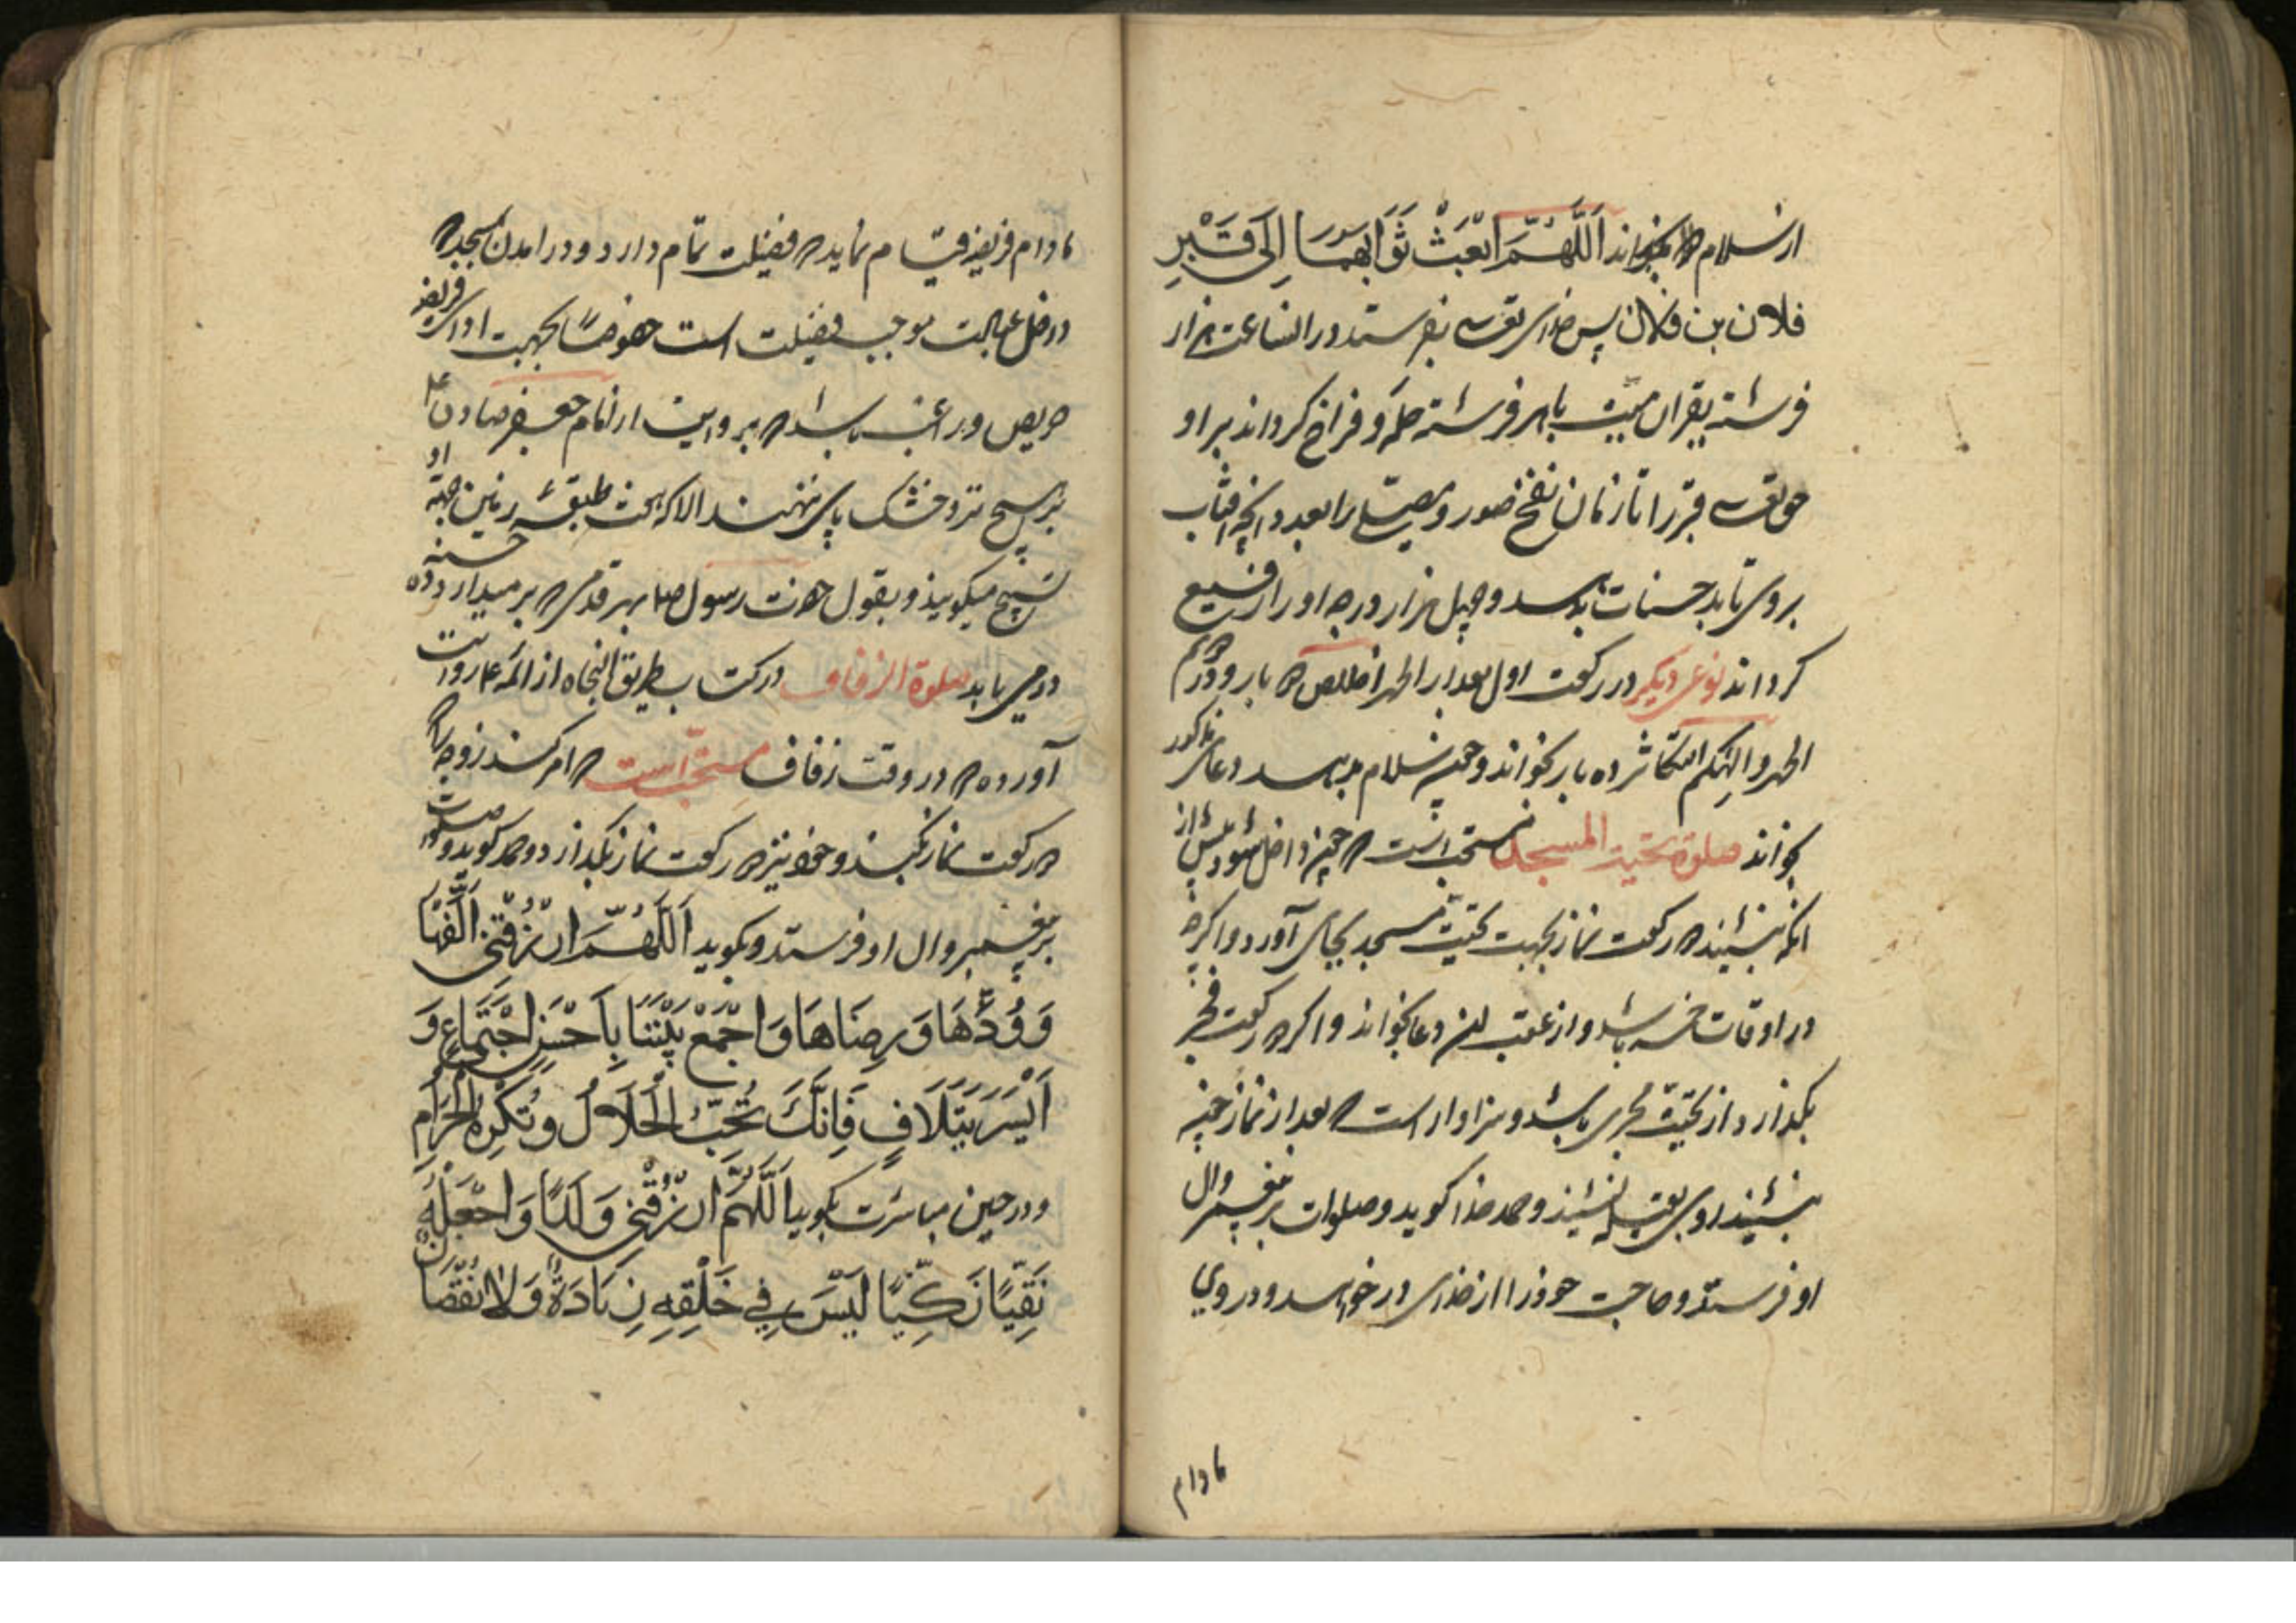 از سلام بخواند اَللّٰهُمَّ ابْعَثْ ثَوَابَهُمَا اِلَى قَبْرِ
فلان بن فلان پس خدای تعالی بفرستد در انساعت هزار
فرشته بقبر ان میت با هر فرشته حله و فراخ کرداند بر او
حق تعالی قبر را تا زمان نفخ صور و را بعدد انچه افتاب
بر وی تابد حسنات بدهد و چهل هزار درجه او را رفیع
کرداند نوعی دیکر در رکعت اول بعد از الحمد اخلاص بار و دوم
الحمد و الهیکم التکاثر ده بار بخواند و چون سلام بدهد دعای مذکور
بخواند صلوة تحیت المسجد مستحب است که چون داخل شود پیش از
انکه بنشیند دو رکعت نماز بجهت تحیت مسجد بجای آورد و اکرچه
در اوقات خمسه باشد و از عقب این دعا بخواند و اکر دو رکعت فجر
بکذارد از تحیت مجری باشد و سزاوار است که بعد از نماز چون
بنشیند روی بقبله نشیند و حمد خدا کوید و صلوات بر پیغمبر وال
او فرستد و حاجت خود را از خدای در خواهد و در وی
مادام
مادام فریضه قیام نماید که فضیلت تمام دارد و در امدن بمسجد که
داخل موجب فضیلت است خصوصاً بجهت ادای فریضه
حریص و راغب باشد که بروایت از امام جعفر صادق ع
بر هیچ تر و خشک پای ننهند الا که تحت طبقه زمین جهة او
تسبیح میکویند و بقول حضرت رسول ص بهر قدمی که بر میدارد ده حسنه
در می یابد صلوة الزفاف دو رکعت بطریق از ائمه ع روایت
آورده که در وقت زفاف مستحب است که امر کند زوجه را که
دو رکعت نماز بکند و خود نیز دو رکعت نماز بکذارد و حمد کوید و صلوات
بر پیغمبر وال او فرستد و بکوید اَللّٰهُمَّ ارْزُقْنِی اِلْفَهَا
وَ وُدَّهَا وَ رِضَاهَا وَ اجْمَعْ بَیْنَنَا بِاَحْسَنِ اجْتِمَاعٍ وَ
اَیْسَرِ ایْتِلَافٍ فَاِنَّكَ تُحِبُّ الْحَلَالَ وَ تَكْرِهُ الْحَرَامَ
و در حین مباشرت بکوید اَللّٰهُمَّ ارْزُقْنِی وَلَدًا وَ اجْعَلْهُ
تَقِیًّا زَكِیًّا لَیْسَ فِی خَلْقِهِ زِیَادَةٌ وَ لَا نُقْصَانٌ